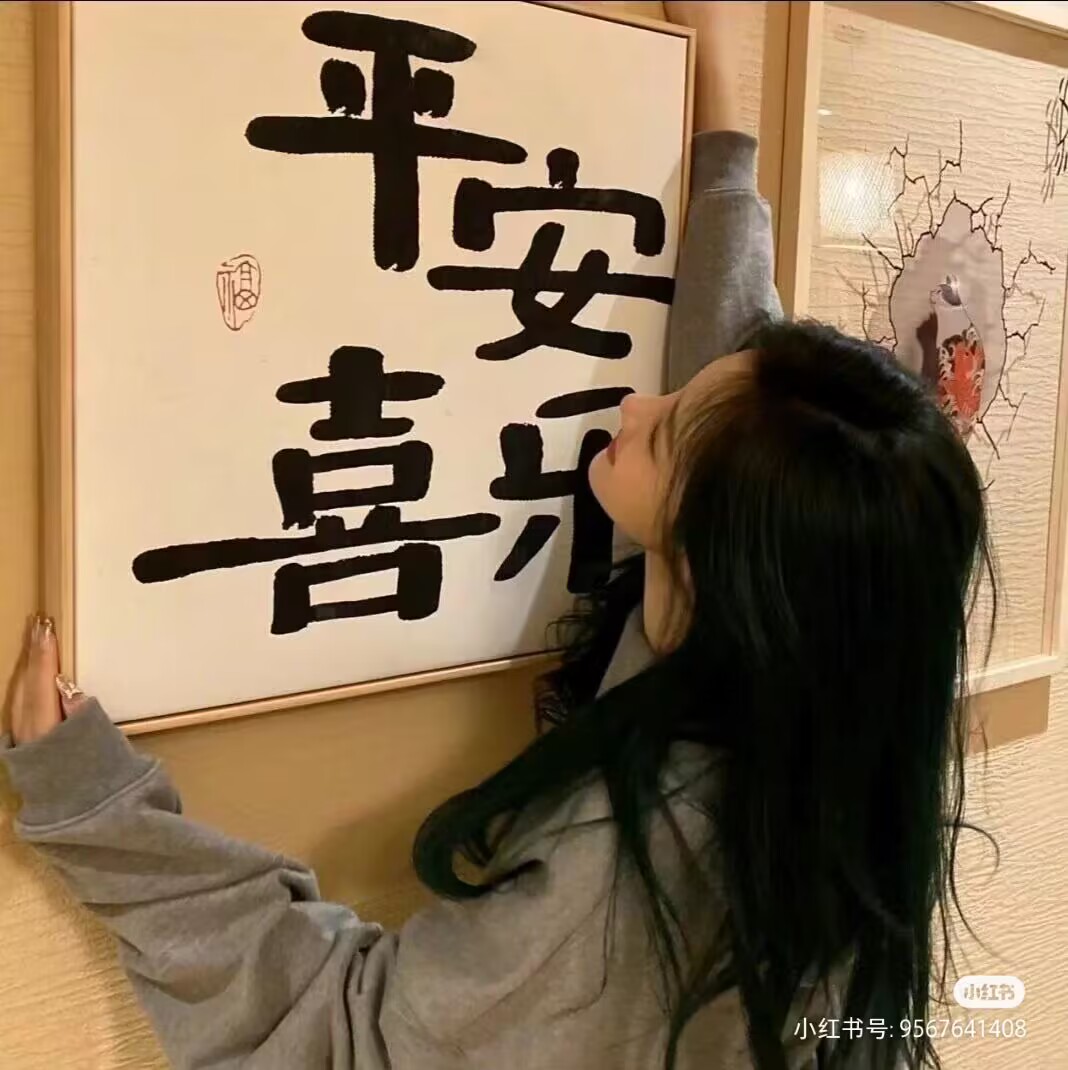 平安
喜乐
福
小红书
小红书号: 9567641408